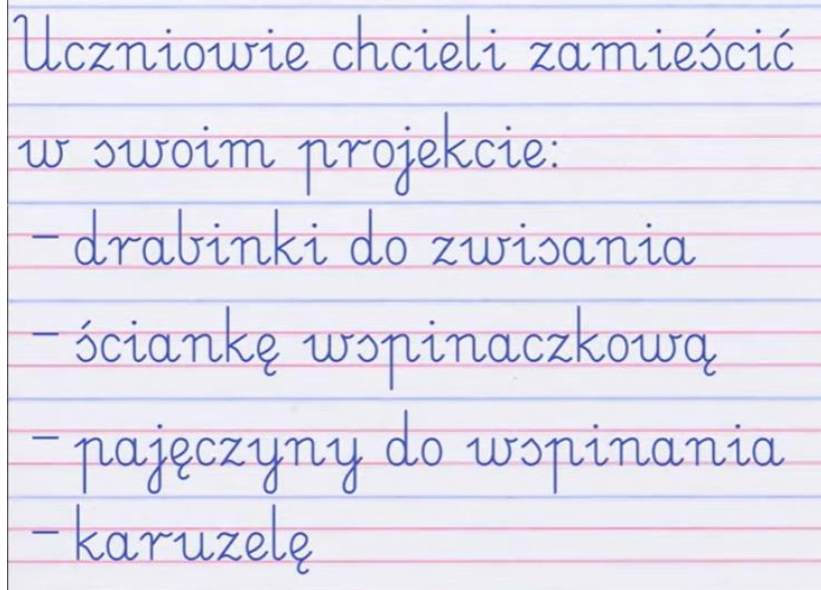 Uczniowie chcieli zamieścić
w swoim projekcie:
- drabinki do zwisania
- ściankę wspinaczkową
- pajęczyny do wspinania
- karuzelę